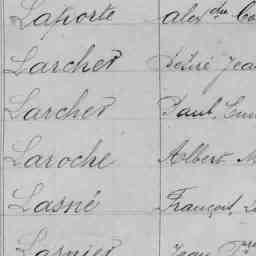 Laporte Alex dre
Larcher Désiré Jea
Larcher Paul
Laroche Albert M
Lasné François
Lasnier Jean